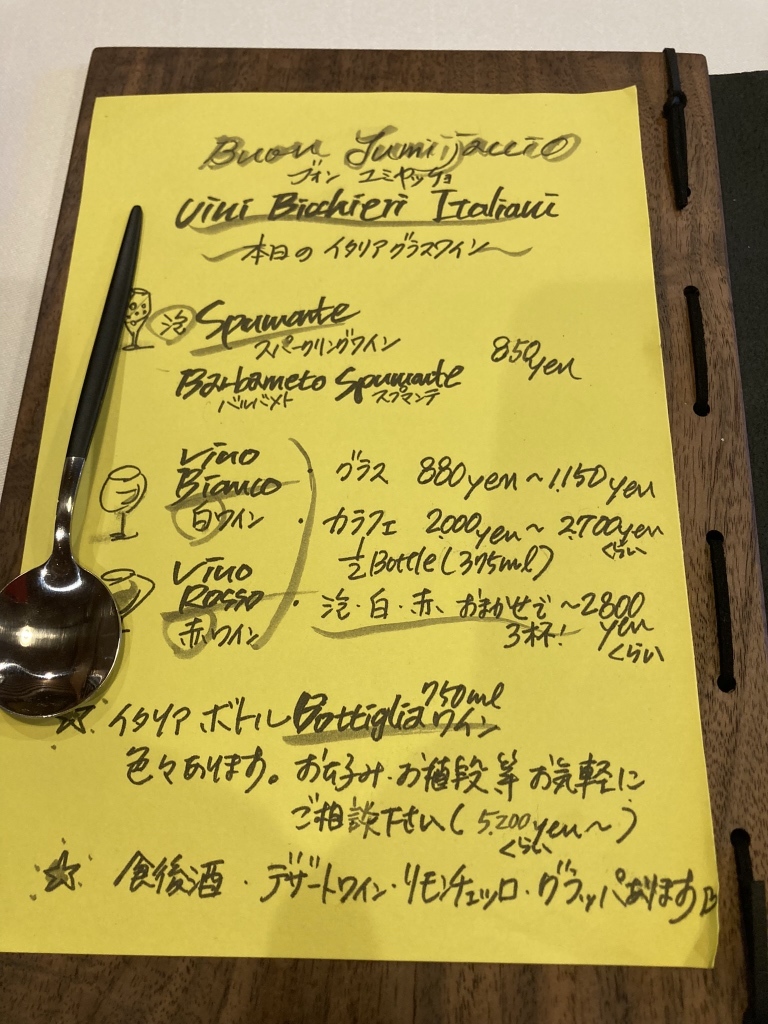 Buon Yumijaccio
ブォン ユミヤッチョ
Vini Bicchieri Italiani
〜本日の イタリアグラスワイン〜
泡 Spumante
スパークリングワイン 850yen
Barbameto Spumante
バルバメト スプマンテ
Vino
Bianco
白ワイン
Vino
Rosso
赤ワイン
・グラス 880yen〜1.150yen
・カラフェ 2.000yen〜2.700yen
くらい
1/2 Bottle (375ml)
・泡・白・赤、おまかせで 〜2800
3杯! yen
くらい
☆ イタリア ボトル Bottiglia 750ml
ワイン
色々あります。お好み・お値段等 お気軽に
ご相談下さい ( 5.200yen〜 )
くらい
☆ 食後酒・デザートワイン・リモンチェッロ・グラッパあります